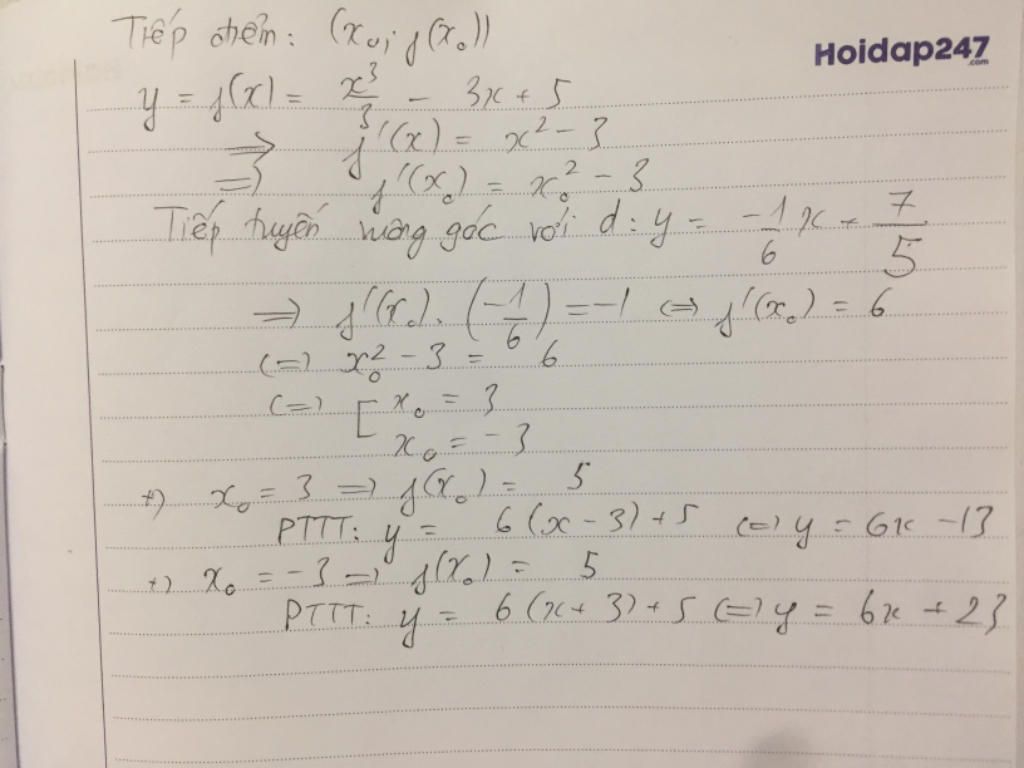 Tiếp điểm: (x₀; f(x₀))
Hoidap247
.com
y = f(x) = x³/3 - 3x + 5
=> f'(x) = x² - 3
=> f'(x₀) = x₀² - 3
Tiếp tuyến vuông góc với d: y = -1/6 x + 7/5
=> f'(x₀). (-1/6) = -1 <=> f'(x₀) = 6
<=> x₀² - 3 = 6
<=> [ x₀ = 3
x₀ = -3
+) x₀ = 3 => f(x₀) = 5
PTTT: y = 6(x - 3) + 5 <=> y = 6x - 13
+) x₀ = -3 => f(x₀) = 5
PTTT: y = 6(x + 3) + 5 <=> y = 6x + 23